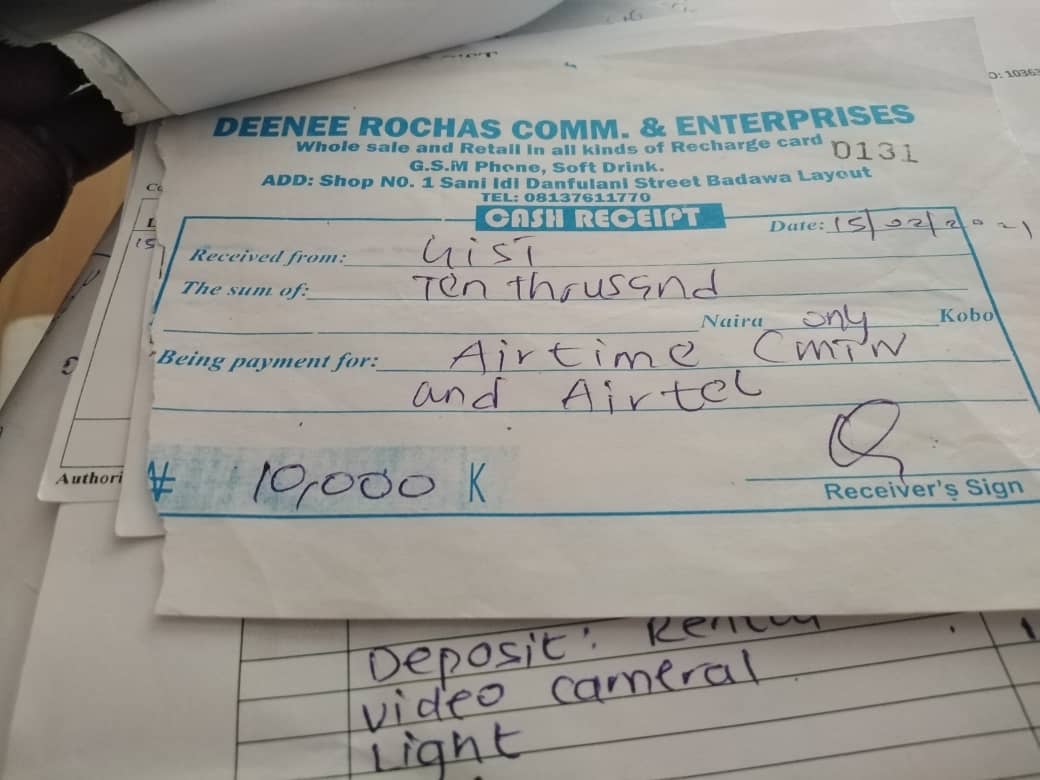 O: 10363
DEENEE ROCHAS COMM. & ENTERPRISES
Whole sale and Retail in all kinds of Recharge card
0131
G.S.M Phone, Soft Drink.
ADD: Shop NO. 1 Sani Idi Danfulani Street Badawa Layout
TEL: 08137611770
CASH RECEIPT
Date: 15/02/2021
Received from: GIST
The sum of: Ten throusand
Naira only Kobo
Being payment for: Airtime CMTN
and Airtel
₦ 10,000 K
Receiver's Sign
Authori
Deposit:
video cameral
Light